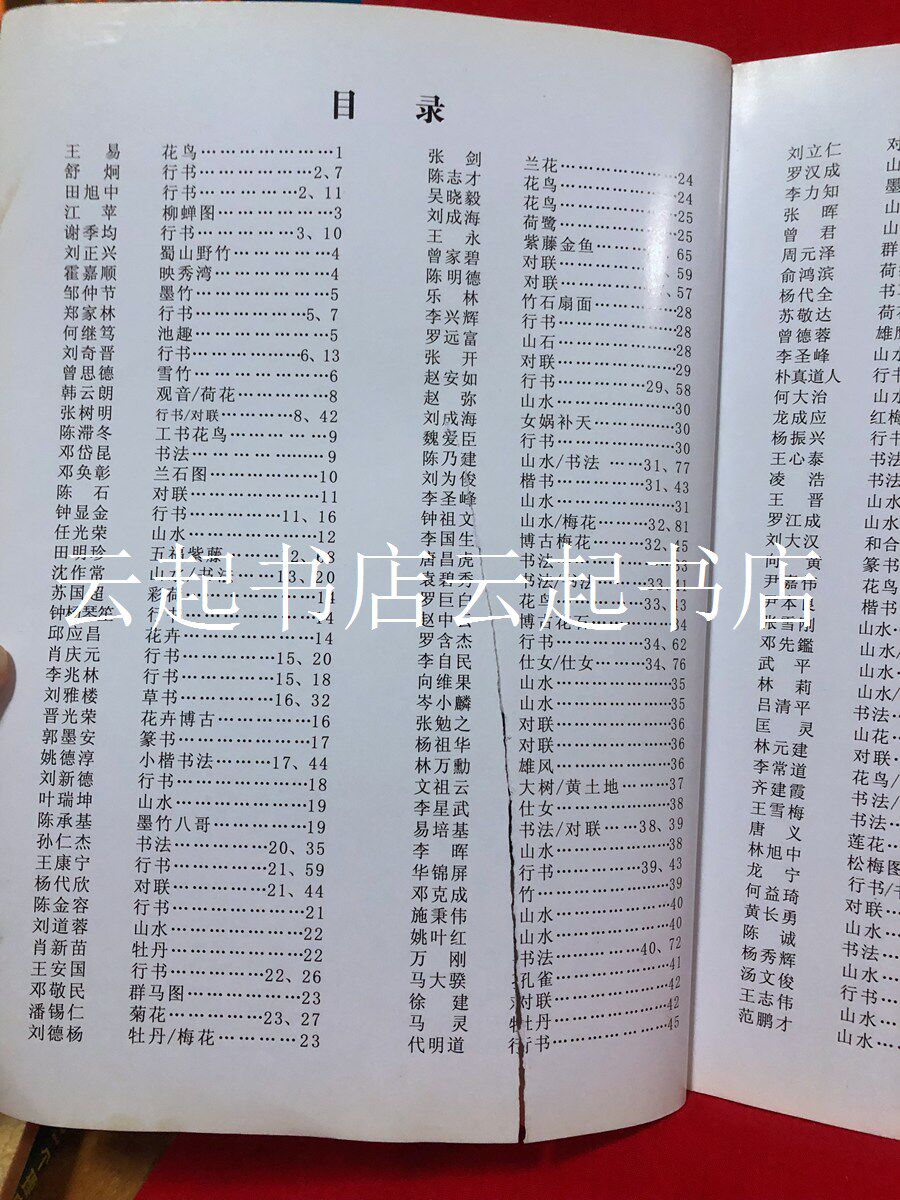 目 录
王 易 花鸟…………………1
舒 炯 行书………………2、7
田旭中 行书………………2、11
江 苹 柳蝉图………………3
谢季均 行书………………3、10
刘正兴 蜀山野竹……………4
霍嘉顺 映秀湾………………4
邹仲节 墨竹…………………5
郑家林 行书………………5、7
何继笃 池趣…………………5
刘奇晋 行书………………6、13
曾思德 雪竹…………………6
韩云朗 观音/荷花……………8
张树明 行书/对联…………8、42
陈滞冬 工书花鸟……………9
邓岱昆 书法…………………9
邓奂彰 兰石图………………10
陈 石 对联…………………11
钟显金 行书……………11、16
任光荣 山水…………………12
田明珍 五福紫藤
沈作常 山水/书法………13、20
苏国超 彩荷…………………14
邱应昌 花卉…………………14
肖庆元 行书……………15、20
李兆林 行书……………15、18
刘雅楼 草书……………16、32
晋光荣 花卉博古……………16
郭墨安 篆书…………………17
姚德淳 小楷书法………17、44
刘新德 行书…………………18
叶瑞坤 山水…………………19
陈承基 墨竹八哥……………19
孙仁杰 书法……………20、35
王康宁 行书……………21、59
杨代欣 对联……………21、44
陈金容 行书…………………21
刘道蓉 山水…………………22
肖新苗 牡丹…………………22
王安国 行书……………22、26
邓敬民 群马图………………23
潘锡仁 菊花……………23、27
刘德杨 牡丹/梅花……………23
张 剑 兰花…………………24
陈志才 花鸟…………………24
吴晓毅 花鸟…………………25
刘成海 荷鹭…………………25
王 永 紫藤金鱼……………65
曾家碧 对联………………、59
陈明德 对联………………、57
乐 林 竹石扇面……………28
李兴辉 行书…………………28
罗远富 山石…………………28
张 开 对联…………………29
赵安如 行书……………29、58
赵 弥 山水…………………30
刘成海 女娲补天……………30
魏爱臣 行书…………………30
陈乃建 山水/书法………31、77
刘为俊 楷书……………31、43
李圣峰 山水…………………31
钟祖文 山水/梅花………32、81
李国生 博古梅花………32、45
唐昌虎 书法…………………33
袁碧秀 书法/书法………33、41
罗巨白 花鸟……………33、43
赵中 博古花石……………34
罗含杰 行书……………34、62
李自民 仕女/仕女………34、76
向维果 山水…………………35
岑小麟 山水…………………35
张勉之 对联…………………36
杨祖华 对联…………………36
林万勳 雄风…………………36
文祖云 大树/黄土地…………37
李星武 仕女…………………38
易培基 书法/对联………38、39
李 晖 山水…………………38
华锦屏 行书……………39、43
邓克成 竹……………………39
施秉伟 山水…………………40
姚叶红 山水…………………40
万 刚 书法……………40、72
马大骙 孔雀…………………41
徐 建 对联…………………42
马 灵 牡丹…………………42
代明道 行书…………………45
刘立仁 对
罗汉成 山
李力知 墨
张 晖 山
曾 君 山
周元泽 群
俞鸿滨 荷
杨代全 书
苏敬达 荷
曾德蓉 雄鹰
李圣峰 山水
朴真道人 行书
何大治 山水
龙成应 红梅
杨振兴 行书
王心泰 书法
凌 浩 书法
王 晋 山水
罗江成 山水
刘大汉 和合
向 黄 篆书
尹嘉伟 花鸟
尹本良 楷书
张雪刚 山水
邓先鑑 山水/
武 平 山水
林 莉 山水/
吕清平 书法
匡 灵 山花
林元建 对联
李常道 花鸟/
齐建霞 书法/
王雪梅 书法…
唐 义 莲花…
林旭中 松梅图
龙 宁 行书/
何益琦 对联…
黄长勇 山水…
陈 诚 书法…
杨秀辉 山水…
汤文俊 行书…
王志伟 山水…
范鹏才 山水…
云起书店云起书店